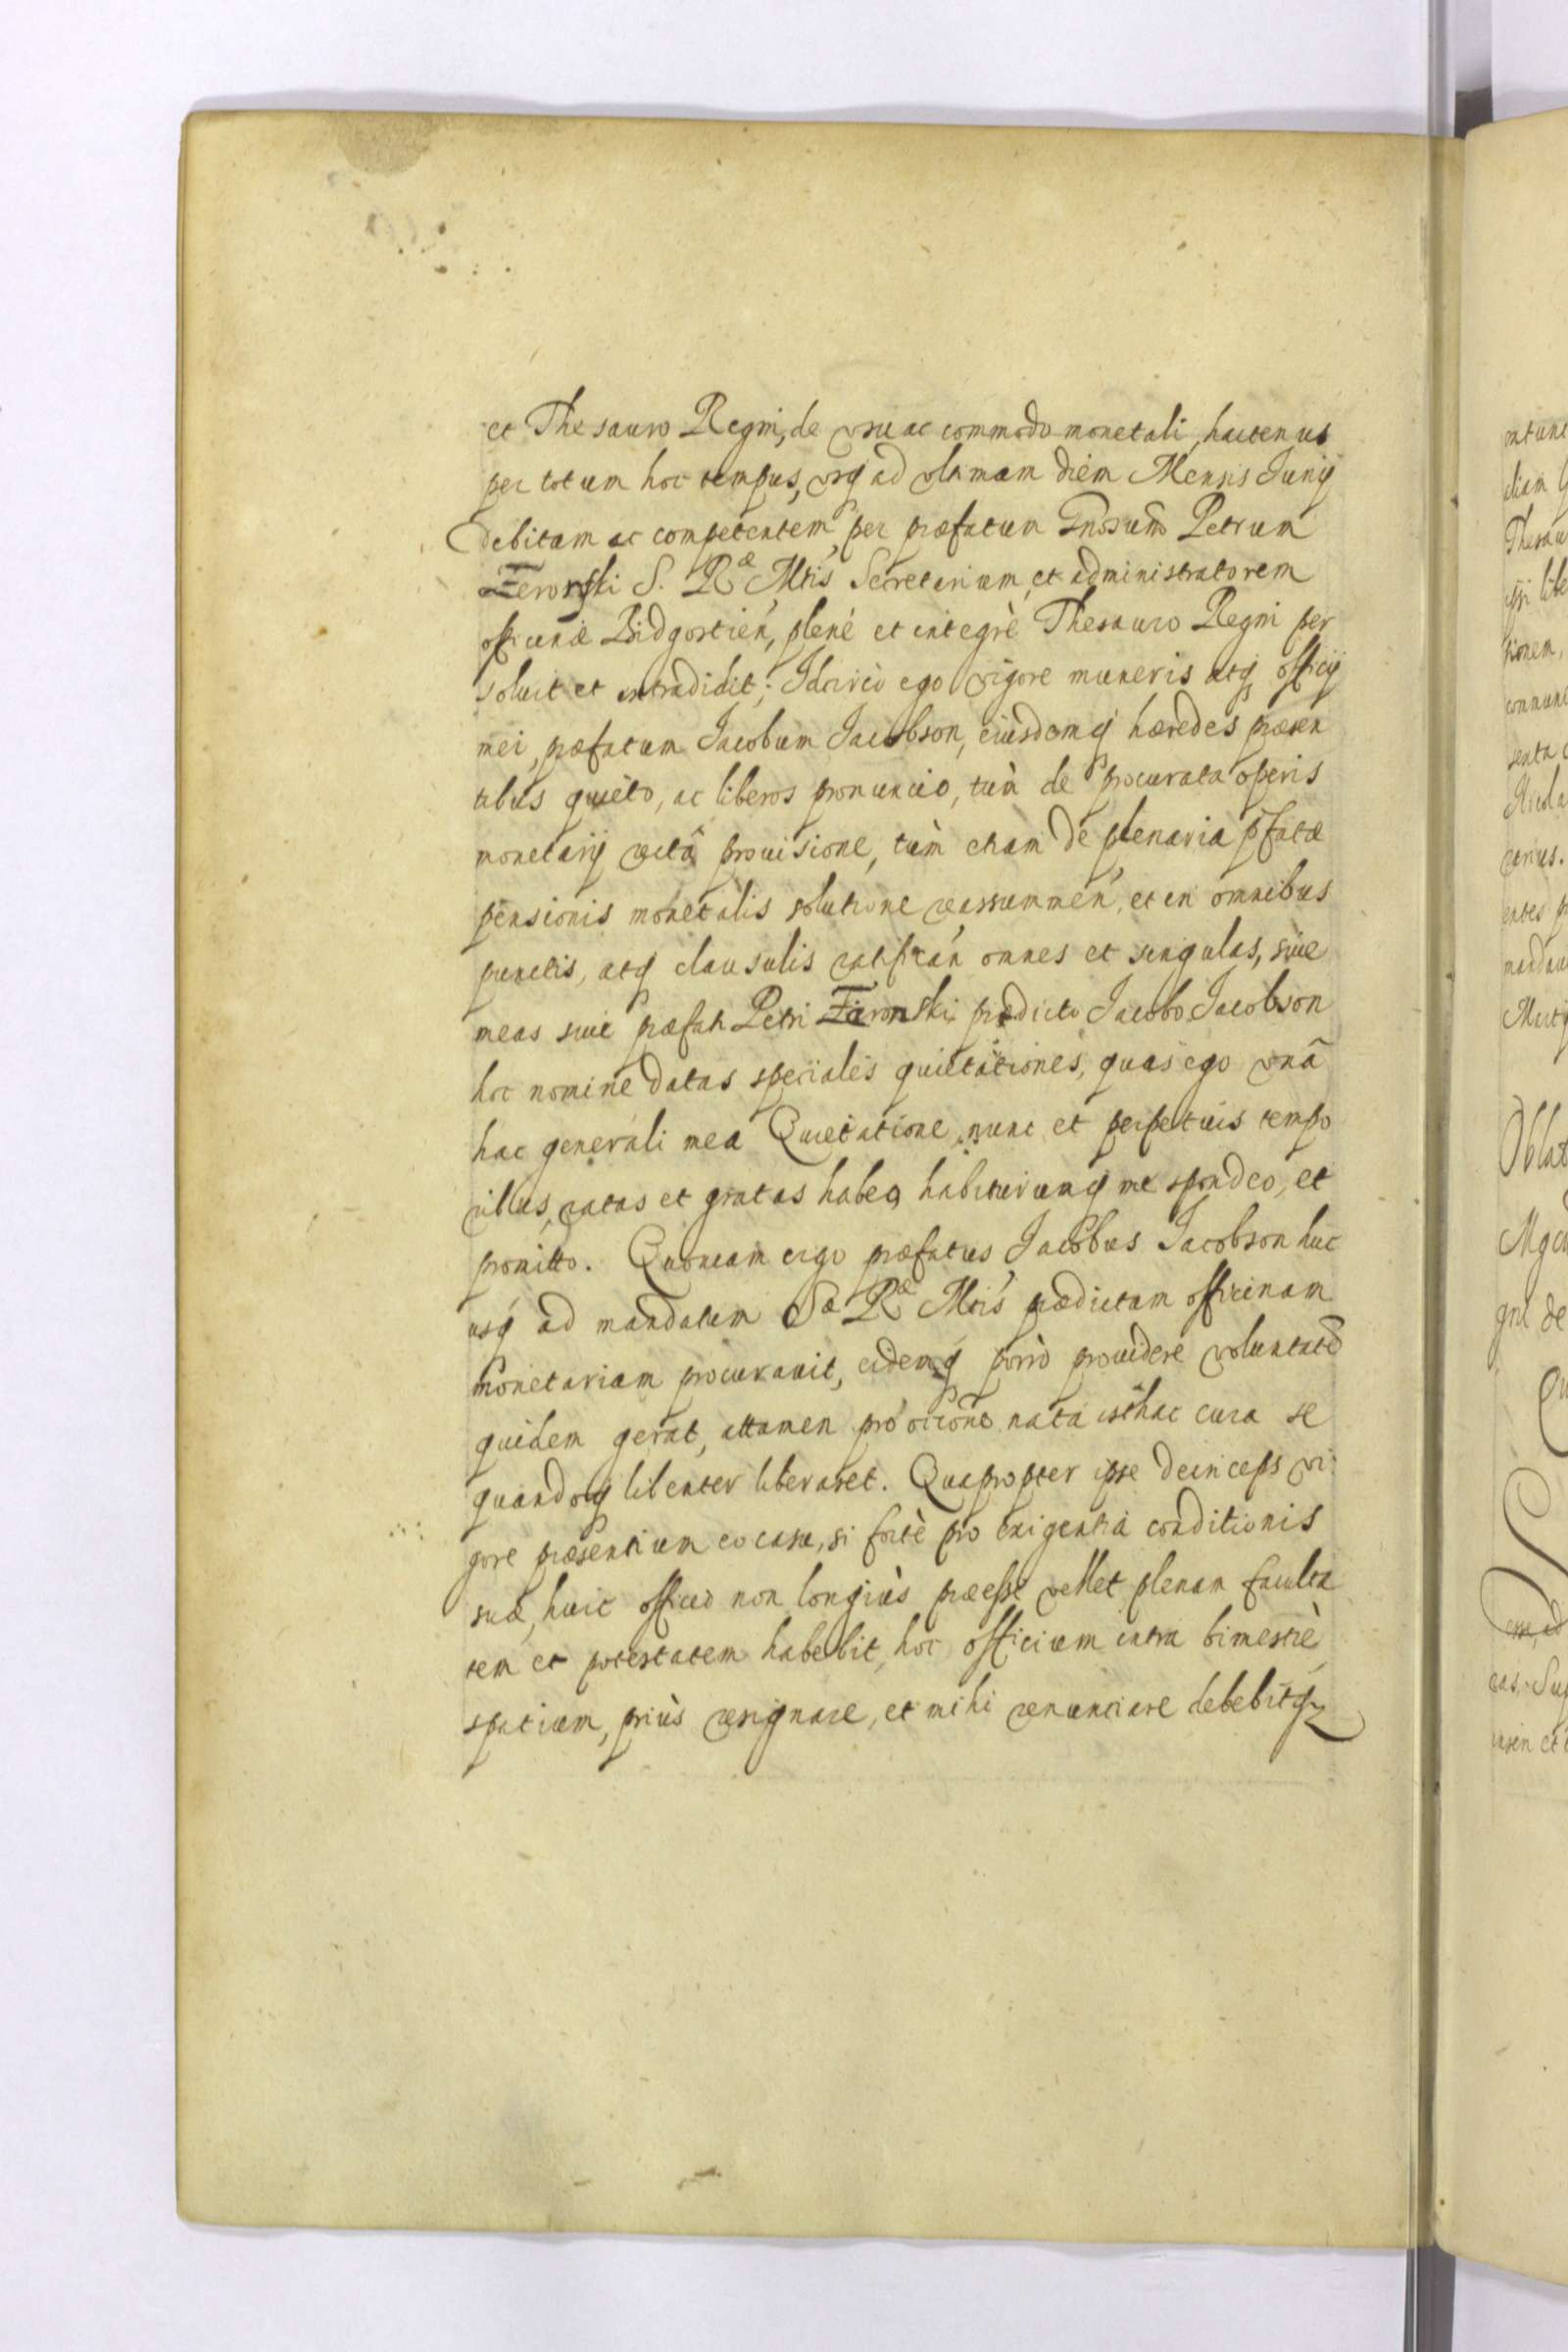 et Thesauro Regni, de vsu ac commodo monetali, hactenus
per totum hoc tempus, vsq ad vltimam diem Mensis Junij
debitam ac competentem per præfatum Gnosum Petrum
Zeronski S. Ræ Mtis Secretarium, et administratorem
officinæ Bidgostien, plenè et integrè Thesauro Regni per
soluit et extradidit; Idcircò ego vigore muneris atq officij
mei, præfatum Jacobum Jacobson, eiusdemq hæredes præsen
tibus quieto, ac liberos pronuncio, tùm de procurata operis
monetarij rectâ prouisione, tùm etiam de plenaria pfatæ
pensionis monetalis solutione reassummen, et in omnibus
punctis, atq clausulis ratifican omnes et singulas, siue
meas siue præfati Petri Zeronski prædicto Jacobo Jacobson
hoc nomine datas speciales quietationes, quas ego vnâ
hac generali mea Quietatione nunc et perpetuis tempo
ribus, ratas et gratas habeo, habiturumq me spondeo, et
promitto. Quoniam ergo præfatus Jacobus Jacobson huc
usq ad mandatum Sæ Ræ Mtis prædictam officinam
monetariam procurauit, eidemq porrò prouidere voluntatẽ
quidem gerat, attamen pro occione nata isthac cura se
quandoq libenter liberaret. Quapropter ipse deinceps vi
gore præsentium eo casu, si fortè pro exigentia conditionis
suæ, huic officio non longiùs præesse vellet plenam faculta
tem et potestatem habebit, hoc officium intra bimestre
spatium, priùs resignare, et mihi renunciare debebitq